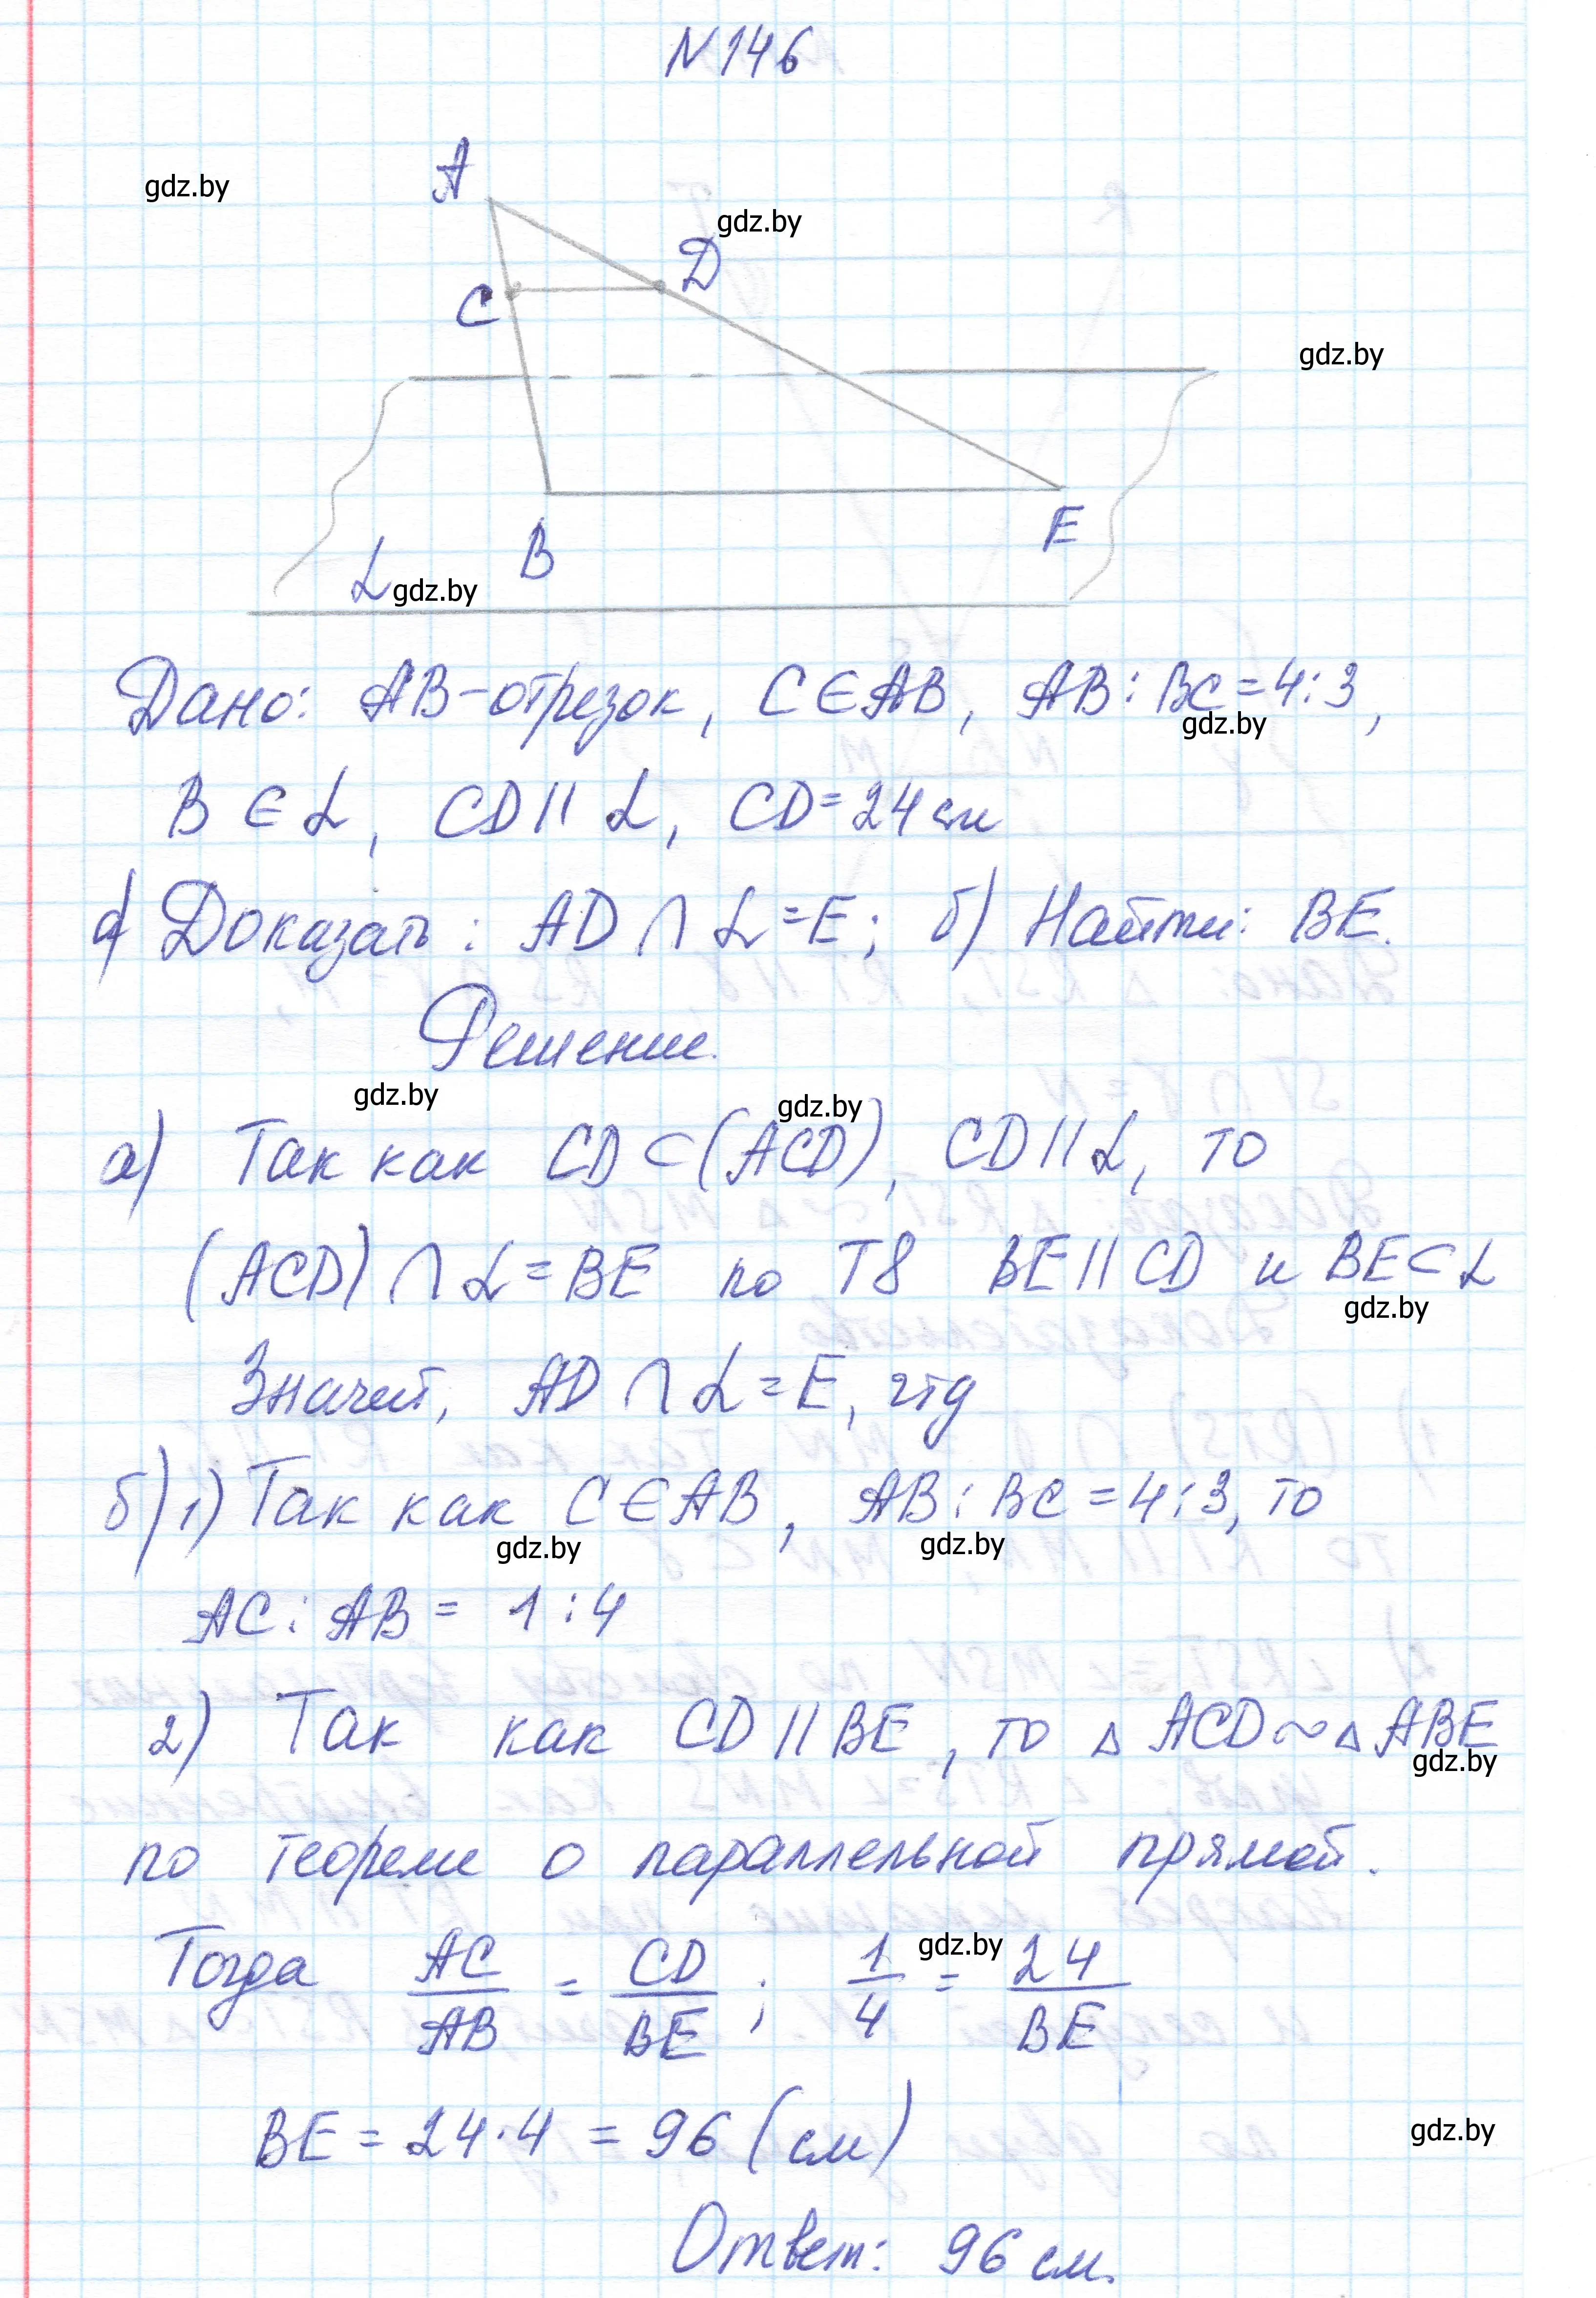 N 146
A
gdz.by
gdz.by
D
C
gdz.by
B
E
α gdz.by
Дано: AB-отрезок, C∈AB, AB:BC=4:3,
gdz.by
B∈α, CD||α, CD=24см
а) Доказать: AD∩α=E; б) Найти: BE.
Решение.
gdz.by
gdz.by
а) Так как CD⊂(ACD), CD||α, то
(ACD)∩α=BE по Т8 BE||CD и BE⊂α
gdz.by
Значит, AD∩α=E, чтд
б) 1) Так как C∈AB, AB:BC=4:3, то
gdz.by
gdz.by
AC:AB=1:4
2) Так как CD||BE, то △ACD~△ABE
gdz.by
по теореме о параллельной прямой.
Тогда AC/AB = CD/BE; 1/4 = 24/BE
gdz.by
BE=24·4=96 (см)
gdz.by
Ответ: 96 см.